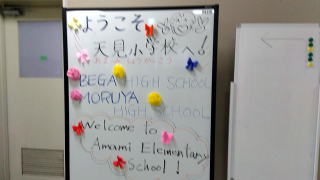 ようこそ
天見小学校へ!
BEGA HIGH SCHOOL
MORUYA
HIGH SCHOOL
Welcome to
Amami Elementary
School!